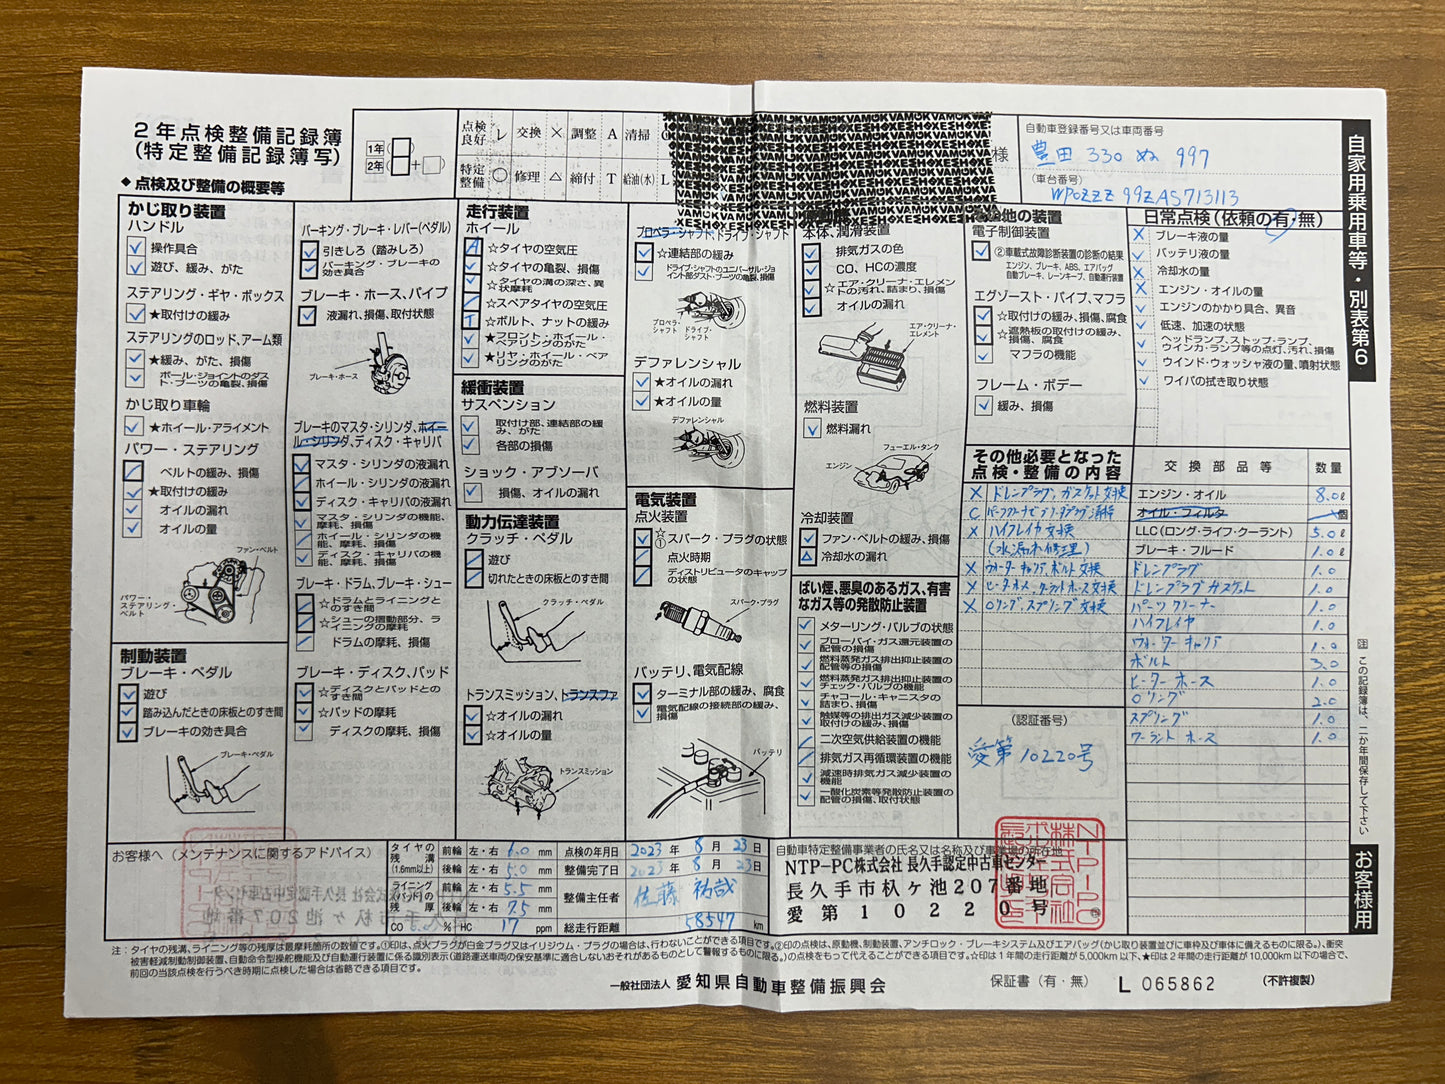 2年点検整備記録簿
(特定整備記録簿写)
1年
2年
点検良好 レ 交換 × 調整 A 清掃
特定整備 ○ 修理 △ 締付 T 給油(水) L
様
自動車登録番号又は車両番号
豊田 330 ぬ 997
(車台番号)
WP0ZZZ 99ZAS713113
自家用乗用車等・別表第6
◆点検及び整備の概要等
かじ取り装置
ハンドル
操作具合
遊び、緩み、がた
ステアリング・ギヤ・ボックス
★取付けの緩み
ステアリングのロッド、アーム類
★緩み、がた、損傷
ボール・ジョイントのダスト・ブーツの亀裂、損傷
かじ取り車輪
★ホイール・アライメント
パワー・ステアリング
ベルトの緩み、損傷
★取付けの緩み
オイルの漏れ
オイルの量
ファン・ベルト
パワー・ステアリング・ベルト
制動装置
ブレーキ・ペダル
遊び
踏み込んだときの床板とのすき間
ブレーキの効き具合
ブレーキ・ペダル
パーキング・ブレーキ・レバー(ペダル)
引きしろ(踏みしろ)
パーキング・ブレーキの効き具合
ブレーキ・ホース、パイプ
液漏れ、損傷、取付状態
ブレーキ・ホース
ブレーキのマスタ・シリンダ、ホイール・シリンダ、ディスク・キャリパ
マスタ・シリンダの液漏れ
ホイール・シリンダの液漏れ
ディスク・キャリパの液漏れ
マスタ・シリンダの機能、摩耗、損傷
ホイール・シリンダの機能、摩耗、損傷
ディスク・キャリパの機能、摩耗、損傷
ブレーキ・ドラム、ブレーキ・シュー
☆ドラムとライニングとのすき間
☆シューの摺動部分、ライニングの摩耗
ドラムの摩耗、損傷
ブレーキ・ディスク、パッド
☆ディスクとパッドとのすき間
☆パッドの摩耗
ディスクの摩耗、損傷
走行装置
ホイール
☆タイヤの空気圧
☆タイヤの亀裂、損傷
☆タイヤの溝の深さ、異状摩耗
☆スペアタイヤの空気圧
☆ボルト、ナットの緩み
★フロント・ホイール・ベアリングのがた
★リヤ・ホイール・ベアリングのがた
緩衝装置
サスペンション
取付け部、連結部の緩み、がた
各部の損傷
ショック・アブソーバ
損傷、オイルの漏れ
動力伝達装置
クラッチ・ペダル
遊び
切れたときの床板とのすき間
クラッチ・ペダル
トランスミッション、トランスファ
☆オイルの漏れ
☆オイルの量
トランスミッション
プロペラ・シャフト、ドライブ・シャフト
☆連結部の緩み
ドライブ・シャフトのユニバーサル・ジョイント部ダスト・ブーツの亀裂、損傷
プロペラ・シャフト
ドライブ・シャフト
デファレンシャル
★オイルの漏れ
★オイルの量
デファレンシャル
電気装置
点火装置
☆①スパーク・プラグの状態
点火時期
ディストリビュータのキャップの状態
スパーク・プラグ
バッテリ、電気配線
ターミナル部の緩み、腐食
電気配線の接続部の緩み、損傷
バッテリ
本体、潤滑装置
排気ガスの色
CO、HCの濃度
☆エア・クリーナ・エレメントの汚れ、詰まり、損傷
オイルの漏れ
エア・クリーナ・エレメント
燃料装置
燃料漏れ
フューエル・タンク
エンジン
冷却装置
ファン・ベルトの緩み、損傷
冷却水の漏れ
ばい煙、悪臭のあるガス、有害なガス等の発散防止装置
メターリング・バルブの状態
ブローバイ・ガス還元装置の配管の損傷
燃料蒸発ガス排出抑止装置の配管等の損傷
燃料蒸発ガス排出抑止装置のチェック・バルブの機能
チャコール・キャニスタの詰まり、損傷
触媒等の排出ガス減少装置の取付けの緩み、損傷
二次空気供給装置の機能
排気ガス再循環装置の機能
減速時排気ガス減少装置の機能
一酸化炭素等発散防止装置の配管の損傷、取付状態
の他の装置
電子制御装置
②車載式故障診断装置の診断の結果
エンジン、ブレーキ、ABS、エアバッグ
自動ブレーキ、レーンキープ、自動運行装置
エグゾースト・パイプ、マフラ
☆取付けの緩み、損傷、腐食
☆遮熱板の取付けの緩み、損傷、腐食
マフラの機能
フレーム・ボデー
緩み、損傷
日常点検(依頼の有・無)
ブレーキ液の量
バッテリ液の量
冷却水の量
エンジン・オイルの量
エンジンのかかり具合、異音
低速、加速の状態
ヘッドランプ、ストップ・ランプ、ウインカ・ランプ等の点灯、汚れ、損傷
ウインド・ウォッシャ液の量、噴射状態
ワイパの拭き取り状態
その他必要となった点検・整備の内容
× ドレンプラグ、ガスケット交換
× ハイフレイヤ交換
(水漏れ修理)
× ウォーターキャップ、ボルト交換
× ヒーターホース、クーラントホース交換
× Oリング、スプリング交換
(認証番号)
愛第10220号
交換部品等 数量
エンジン・オイル 8.0ℓ
オイル・フィルタ 個
LLC(ロング・ライフ・クーラント) 5.0ℓ
ブレーキ・フルード 1.0ℓ
ドレンプラグ 1.0
ドレンプラグガスケット 1.0
パーツクリーナー 1.0
ハイフレイヤ 1.0
ウォーターキャップ 1.0
ボルト 3.0
ヒーターホース 1.0
Oリング 2.0
スプリング 1.0
クーラントホース 1.0
注 この記録簿は、二か年間保存して下さい
お客様用
お客様へ(メンテナンスに関するアドバイス)
タイヤの残溝(1.6mm以上) 前輪 左・右 6.0 mm
後輪 左・右 5.0 mm
ライニング(パッド)の残厚 前輪 左・右 5.5 mm
後輪 左・右 7.5 mm
CO 0.0 % HC 17 ppm
点検の年月日 2023年 8月 23日
整備完了日 2023年 8月 23日
整備主任者 佐藤 祐哉
総走行距離 58547 km
自動車特定整備事業者の氏名又は名称及び事業場の所在地
NTP-PC株式会社 長久手認定中古車センター
長久手市杁ヶ池207番地
愛第10220号
注:タイヤの残溝、ライニング等の残厚は最摩耗箇所の数値です。①印は、点火プラグが白金プラグ又はイリジウム・プラグの場合は、行わないことができる項目です。②印の点検は、原動機、制動装置、アンチロック・ブレーキシステム及びエアバッグ(かじ取り装置並びに車枠及び車体に備えるものに限る。)、衝突
被害軽減制動制御装置、自動命令型操舵機能及び自動運行装置に係る識別表示(道路運送車両の保安基準に適合しないおそれがあるものとして警報するものに限る。)の点検をもって代えることができる項目です。☆印は1年間の走行距離が5,000km以下、★印は2年間の走行距離が10,000km以下の場合で、
前回の当該点検を行うべき時期に点検した場合は省略できる項目です。
一般社団法人 愛知県自動車整備振興会
保証書(有・無)
L 065862
(不許複製)